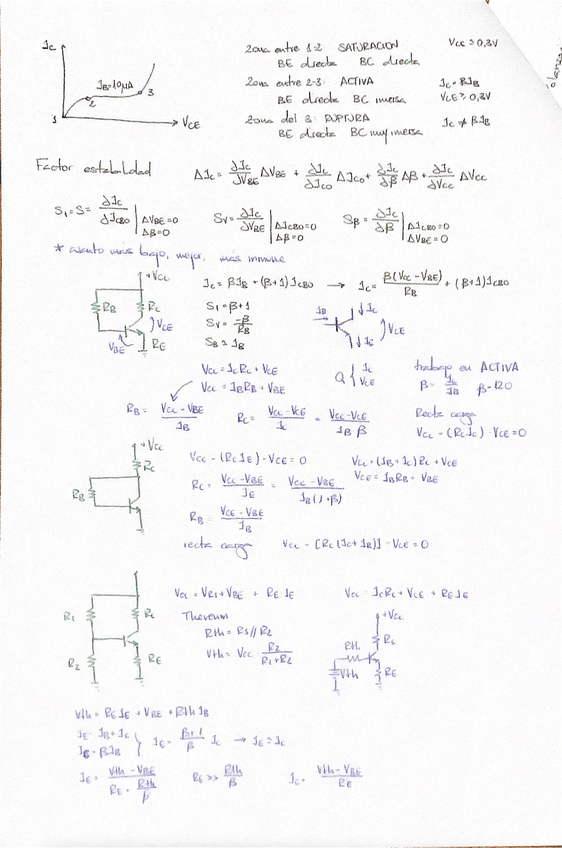 Ic
IB=10μA
1
2
3
VCE
Zona entre 1-2: SATURACION VCE > 0,3V
BE directa BC directa
Zona entre 2-3: ACTIVA Ic = βIB
BE directa BC inversa VCE > 0,3V
Zona del 3: RUPTURA Ic ≠ βIB
BE directa BC muy inversa
Factor estabilidad ΔIc = ∂Ic/∂VBE ΔVBE + ∂Ic/∂Ico ΔIco + ∂Ic/∂β Δβ + ∂Ic/∂Vcc ΔVcc
S1 = S = ∂Ic/∂ICBO | ΔVBE=0 Δβ=0 Sv = ∂Ic/∂VBE | ΔICBO=0 Δβ=0 Sβ = ∂Ic/∂β | ΔICBO=0 ΔVBE=0
* cuanto más bajo, mejor, más inmune
+Vcc
RB
Rc
VCE
VBE
RE
Ic = βIB + (β+1)ICBO → Ic = β(Vcc - VBE)/RB + (β+1)ICBO
S1 = β+1
Sv = -β/RB
Sβ ≃ IB
IB
Ic
VCE
IE
Vcc = IcRc + VCE
Vcc = IBRB + VBE
Q { Ic VCE
trabajo en ACTIVA
β = Ic/IB β=120
RB = Vcc - VBE / IB Rc = Vcc - VCE / Ic = Vcc - VCE / IB β
Recta carga
Vcc - (Rc Ic) - VCE = 0
+Vcc
Rc
RB
Vcc - (Rc IE) - VCE = 0 Vcc = (IB + Ic)Rc + VCE
VCE = IBRB + VBE
Rc = Vcc - VBE / IE = Vcc - VBE / IB(1+β)
RB = VCE - VBE / IB
recta carga Vcc - [Rc (Ic + IB)] - VCE = 0
R1
Rc
R2
RE
Vcc = VR1 + VBE + RE IE Vcc = IcRc + VCE + RE IE
Thevenin
Rth = R1 // R2
Vth = Vcc R2 / R1 + R2
+Vcc
Rc
Rth
Vth
RE
Vth = RE IE + VBE + Rth IB
IE = IB + Ic
Ic = βIB } IE = β+1/β Ic → IE ≃ Ic
IE = Vth - VBE / RE + Rth/β RE >> Rth/β Ic = Vth - VBE / RE